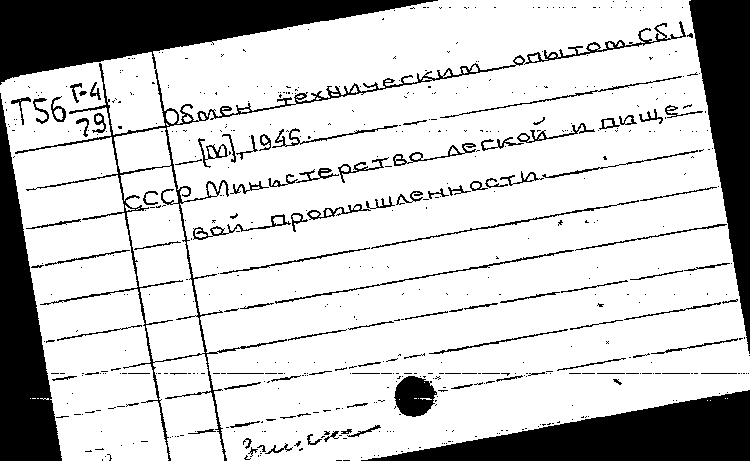 Т56 Г-4
79
Обмен техническим опытом. Сб. 1.
[М], 1945.
СССР Министерство легкой и пище-
вой промышленности.